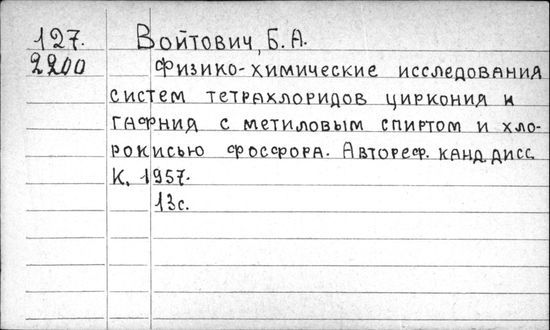 127. Войтович, Б. А.
2200 Физико-химические исследования
систем тетрахлоридов циркония и
гафния с метиловым спиртом и хло-
рокисью фосфора. Автореф. канд дисс.
К. 1957.
13 с.